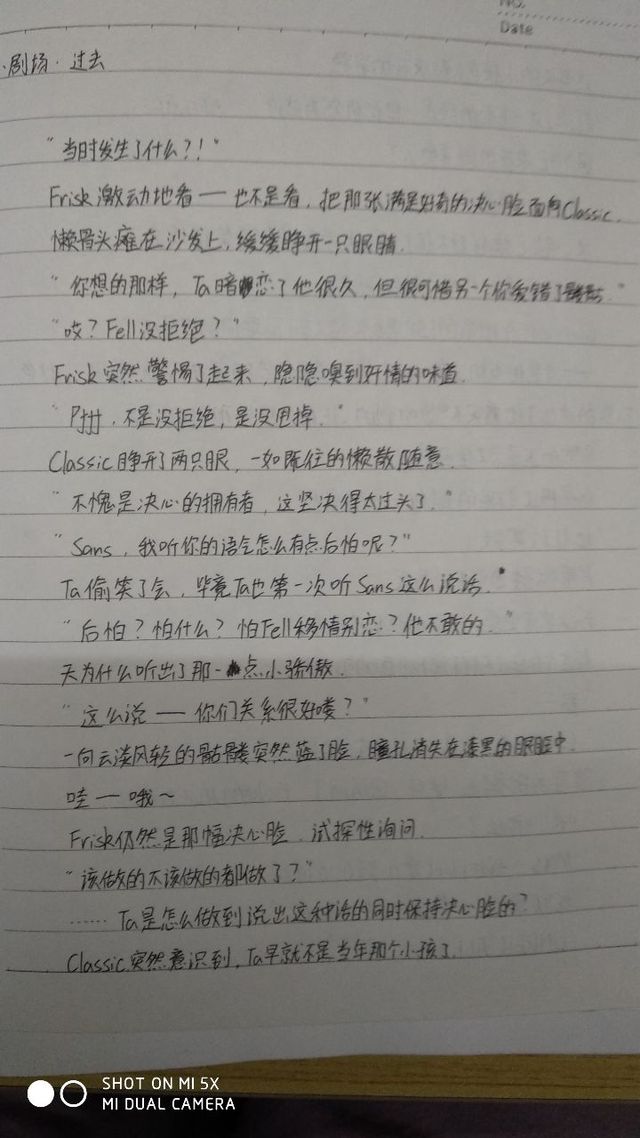 No.
Date
·剧场·过去
"当时发生了什么?!"
Frisk激动地看——也不是看,把那张满是好奇的决心脸面向Classic.
懒骨头瘫在沙发上,缓缓睁开一只眼睛.
"你想的那样,Ta暗恋了他很久,但很可惜另一个你爱错了骷髅."
"哎?Fell没拒绝?"
Frisk突然警惕了起来,隐隐嗅到奸情的味道.
"Pfff,不是没拒绝,是没甩掉."
Classic睁开了两只眼,一如既往的懒散随意.
"不愧是决心的拥有者,这坚决得太过头了."
"Sans,我听你的语气怎么有点后怕呢?"
Ta偷笑了会,毕竟Ta也第一次听Sans这么说话.
"后怕?怕什么?怕Fell移情别恋?他不敢的."
天为什么听出了那一点小骄傲.
"这么说——你们关系很好喽?"
一向云淡风轻的骷髅突然蓝了脸,瞳孔消失在漆黑的眼眶中.
哇——哦~
Frisk仍然是那幅决心脸,试探性询问.
"该做的不该做的都做了?"
……Ta是怎么做到说出这种话的同时保持决心脸的?
Classic突然意识到,Ta早就不是当年那个小孩了.
SHOT ON MI 5X
MI DUAL CAMERA